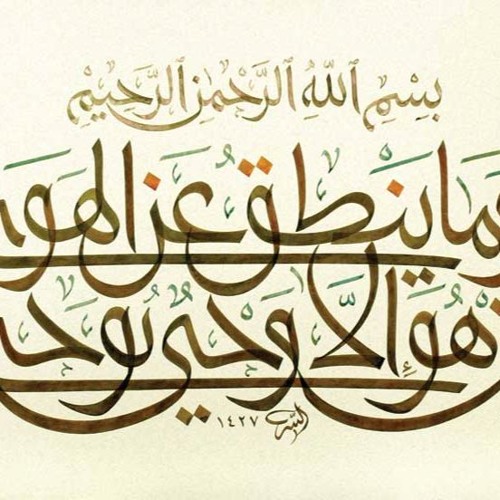 بِسْمِ ٱللَّهِ ٱلرَّحْمَٰنِ ٱلرَّحِيمِ
وَمَا يَنْطِقُ عَنِ الْهَوَى
هُوَ إِلَّا وَحْيٌ يُوحَى
١٤٢٧